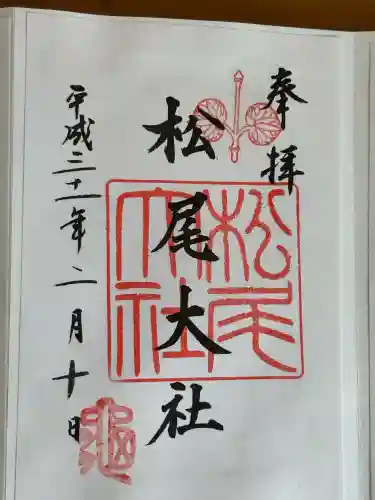 奉拝
松尾大社
平成三十一年二月十日
松尾
大社